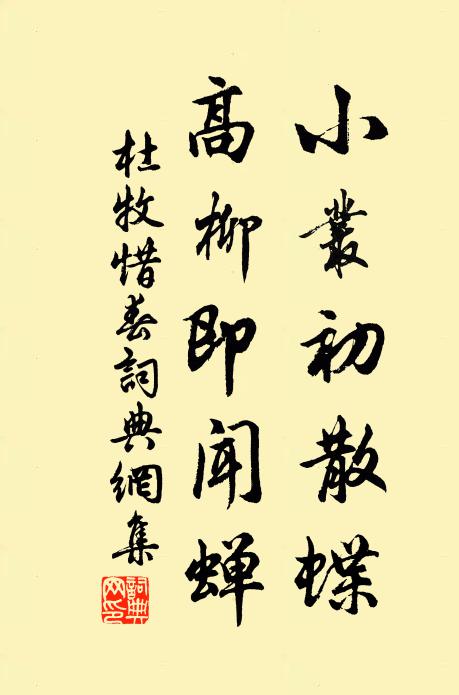 小叢初散蝶
高柳即聞蝉
杜牧惜春詞典網集
詞典網印